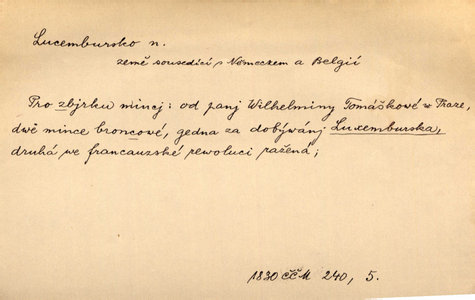 Lucembursko n.
země sousedící s Německem a Belgií
Pro zbjrku mincj: od panj Wilhelminy Tomáškowé w Praze,
dwě mince broncowé, gedna za dobýwánj Luxemburska,
druhá we francauzské rewoluci ražená;
1830 ČČM 240, 5.